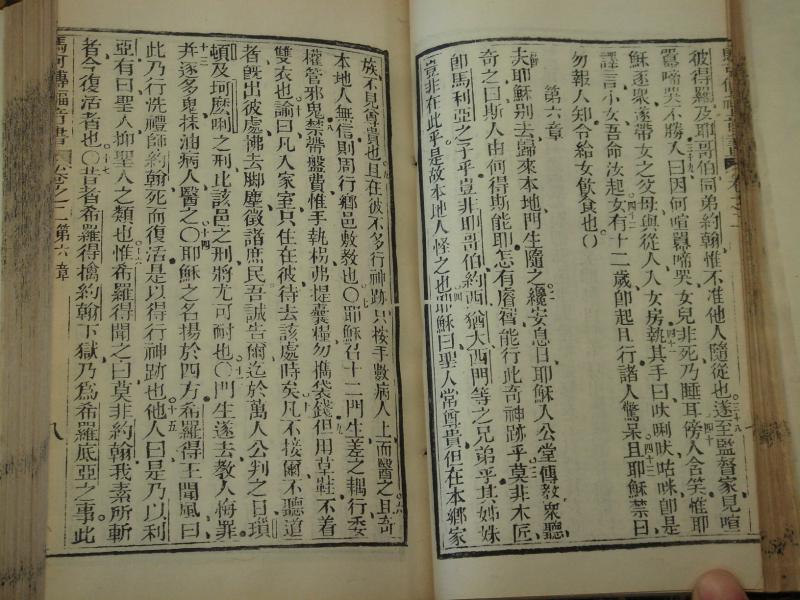 彼得羅及耶哥伯同弟約翰惟不准他人隨從也三十八遂至監督家見喧
嚣啼哭不勝三十九人曰因何喧嚣啼哭女兒非死乃睡耳四十傍人含笑惟耶
穌逐衆遂帶女之父母與從人入女房四十一執其手曰呔唎呔咕咪卽是
譯言小女吾命汝起四十二女有十二歲卽起且行諸人驚呆四十三且耶穌禁曰
勿報人知令給女飲食也〇
第六章
夫耶穌别去歸來本地門生隨之二纔安息日耶穌入公堂傳教衆聽
奇之曰斯人由何得斯能耶怎有睿智能行此奇神跡乎三莫非木匠
卽馬利亞之子乎豈非耶哥伯約西猶大西門等之兄弟乎其姊妹
豈非在此乎是故本地人怪之也四耶穌曰聖人常尊貴但在本鄉家
族不見尊貴也五且在彼不多行神跡只按手數病人上而醫之六且奇
本地人無信則周行鄉邑敷教也〇七耶穌召十二門生差之耦行委
權管邪鬼八禁帶盤費惟手執柺弗提囊糧勿擕袋錢九但用草鞋不着
雙衣也十諭曰凡人家室只住在彼待去該處時矣十一凡不接爾不聽道
者旣出彼處彿去脚塵徵諸庶民吾誠告爾迄於萬人公判之日瑣
頓及坷麽喇之刑比該邑之刑將尤可耐也〇十二門生遂去教人悔罪
十三并逐多鬼抹油病人醫之〇十四耶穌之名揚於四方希羅得王聞風曰
此乃行洗禮師約翰死而復活是以得行神跡也十五他人曰是乃以利
亞有曰聖人抑聖人之類也十六惟希羅得聞之曰莫非約翰我素所斬
者今復活者也〇十七昔者希羅得擒約翰下獄乃爲希羅底亞之事此
馬可傳福音書 卷之二第六章 八